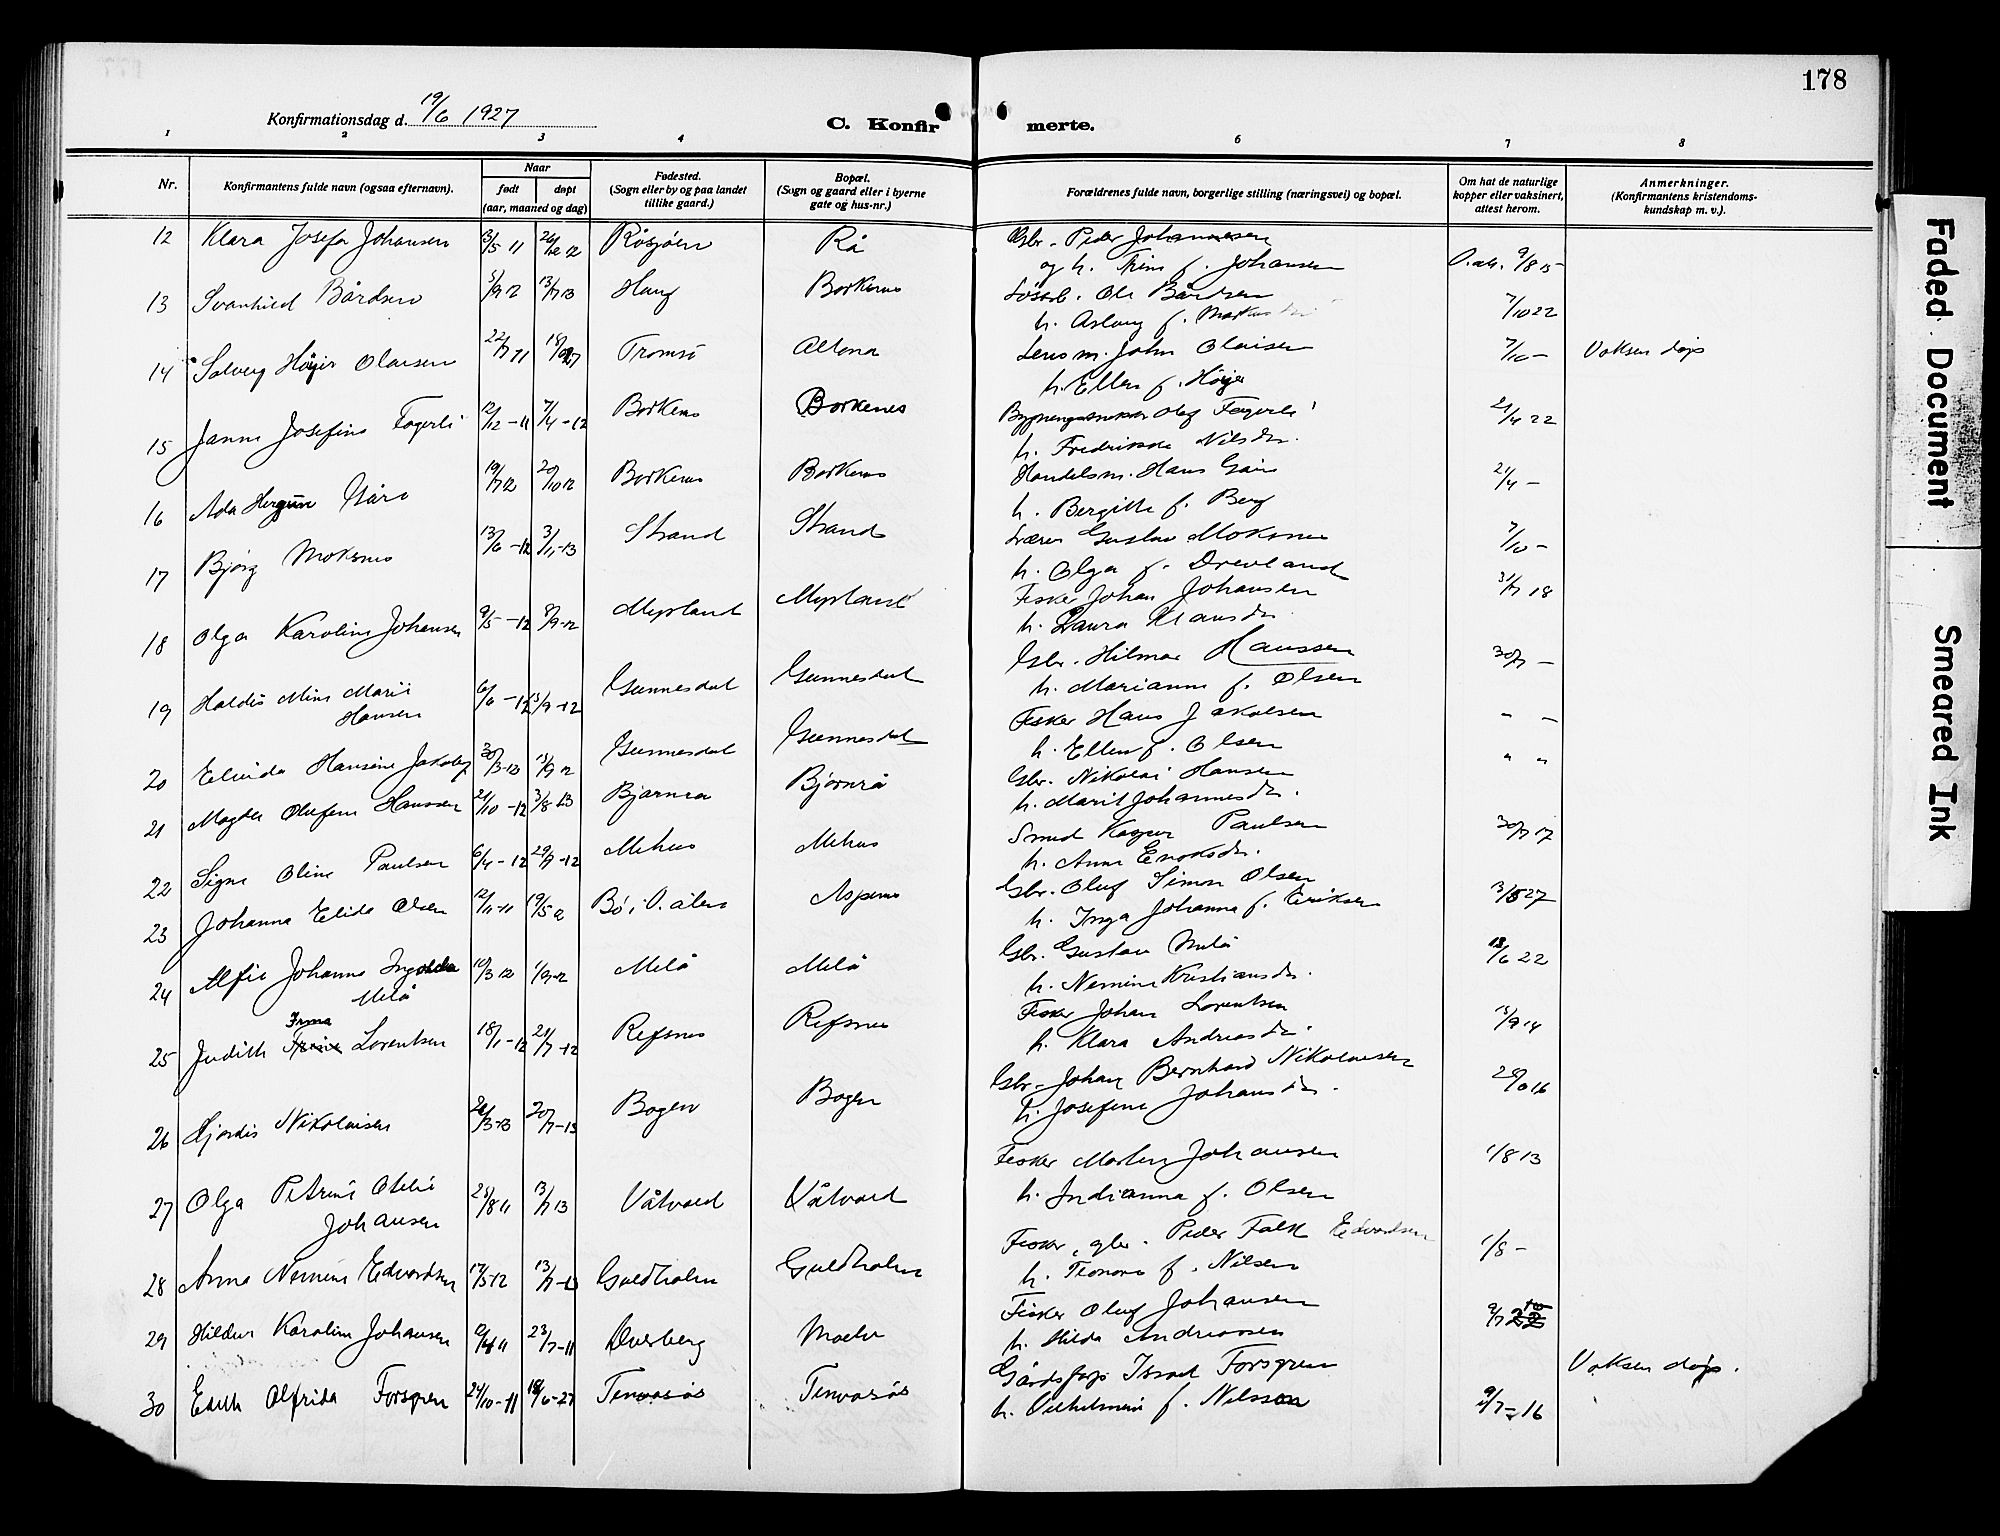 178
Konfirmationsdag d. 19/6 1927
C. Konfirmerte.
1 2 3 4 6 7 8
Nr. Konfirmantens fulde navn (ogsaa efternavn). Naar født døpt (aar, maaned og dag) Fødested. (Sogn eller by og paa landet tillike gaard.) Bopæl. (Sogn og gaard eller i byerne gate og hus-nr.) Forældrenes fulde navn, borgerlige stilling (næringsvei) og bopæl. Om hat de naturlige kopper eller vaksinert, attest herom. Anmerkninger. (Konfirmantens kristendoms-kundskap m. v.).
12 Klara Josefa Johansen 3/5 11 Røsjøen Rå Gbr. Peder Johannesen
og h. Trine f. Johansen 9/8 15
13 Svanhild Bårdsen 5/9 12 13/7 13 Haug Borkenes Løsarb. Ole Bårdsen
h. Aslaug f. 7/10 22
14 Solveig Høyer Olaisen 22/7 11 Tromsø Altona Lensm. John Olaisen 7/10 - Voksen dåp
h. Ellen f. Høyer
15 Janna Josefine Fagerli 12/12 - 11 7/4 - 12 Borkenes Borkenes Olaf Fagerli 21/4 22
h. Fredrikke Nilsdr.
16 Ada 19/7 12 20/10 12 Borkenes Borkenes Handelsm. Hans 21/4 -
h. Bergitte f. Berg
17 Bjørg Moksnes 13/6 - 12 3/11 - 13 Strand Strand Lærer Gustav Moksnes 7/10 -
h. Olga f. Drevland
18 Olga Karoline Johansen 9/5 - 12 8/9 - 12 Myrland Myrland Fisker Johan Johansen 31/7 18
h. Laura Klausdr.
19 Haldis Mine Marie Hansen 6/6 - 12 Gunnesdal Gunnesdal Gbr. Hilmar Hanssen 30/7 -
h. Marianne f. Olsen
20 Elvida Hansine 30/3 - 12 Gunnesdal Gunnesdal Fisker Hans Jakobsen " -
h. Ellen f. Olsen
21 Magda Olufine Hanssen 21/10 - 12 3/8 13 Bjørnrå Bjørnrå Gbr. Nikolai Hansen " "
h. Marit Johannesdr.
22 Signe Oline Paulsen 6/4 - 12 29/7 - 12 Mehus Mehus Smed Kasper Paulsen 30/7 17
h. Anne Enoksdr.
23 Johanna Elida Olsen 12/11 - 11 19/5 12 Bø i V.ålen Aspenes Gbr. Oluf Simon Olsen 3/5 27
h. Inga Johanna f. Eriksen
24 Alfie Johanna Melå 10/3 12 1/9 - 12 Melå Melå Gbr. Gustav Melå 13/6 22
h. Nemine Kristiansdr.
25 Judith Irma Lorentsen 18/1 - 12 21/7 - 12 Refsnes Refsnes Fisker Johan Lorentsen 15/9 14
h. Klara Andreasdr.
26 Hjørdis Nikolaisen 26/3 - 13 20/7 - 13 Bogen Bogen Gbr. Johan Bernhard Nikolaisen
h. Josefine Johansdr.
27 Olga Petrine Otelie Johansen 25/8 11 13/7 13 Våtvold Våtvold Fisker Morten Johansen 1/8 13
h. Indianna f. Olsen
28 Anna Nemine Edvardsen 17/5 12 13/7 - 13 Guldholm Guldholm Fisker, gbr. Peder Falk Edvardsen 1/8 -
h. Leonora f. Nilsen
29 Hildur Karoline Johansen 9/4 11 23/7 - 11 Overberg Moelv Fisker Oluf Johansen
h. Hilda Andreassen
30 Edith Alfrida Forsgren 24/10 - 11 18/6 - 27 Tennvasås Tennvasås Gårdsfor. Forsgren Voksen dåp.
h. Vilhelmine f. Nilsson 9/7 - 16
Faded Document
Smeared Ink